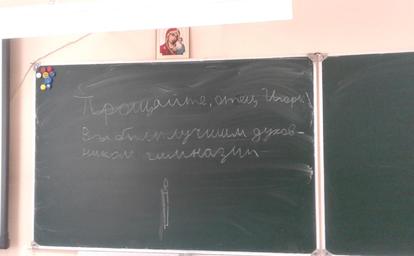 Прощайте, отец Игорь!
Вы были лучшим духов-
ником гимназии